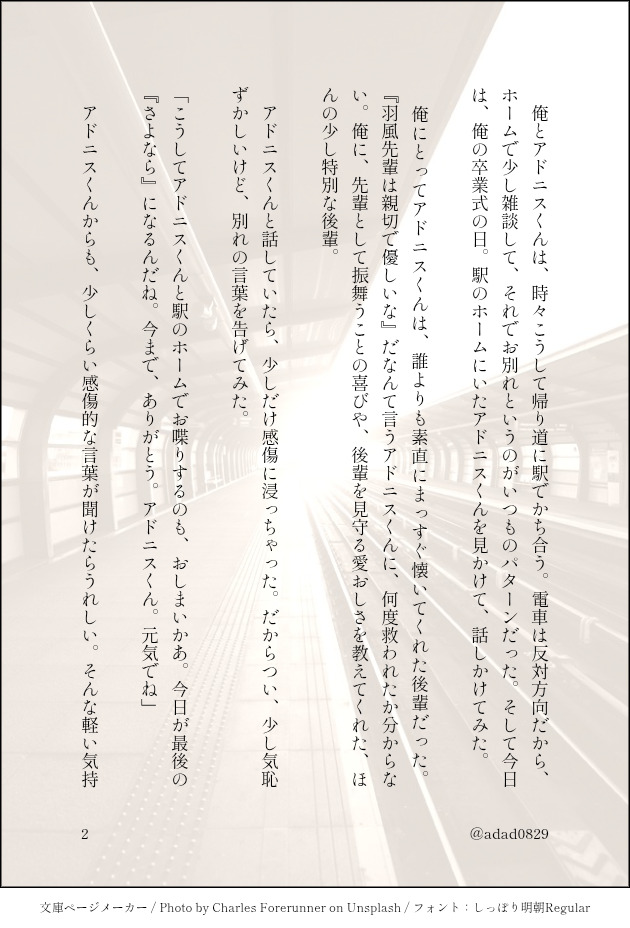 俺とアドニスくんは、時々こうして帰り道に駅でかち合う。電車は反対方向だから、
ホームで少し雑談して、それでお別れというのがいつものパターンだった。そして今日
は、俺の卒業式の日。駅のホームにいたアドニスくんを見かけて、話しかけてみた。
俺にとってアドニスくんは、誰よりも素直にまっすぐ懐いてくれた後輩だった。
『羽風先輩は親切で優しいな』だなんて言うアドニスくんに、何度救われたか分からな
い。俺に、先輩として振舞うことの喜びや、後輩を見守る愛おしさを教えてくれた、ほ
んの少し特別な後輩。
アドニスくんと話していたら、少しだけ感傷に浸っちゃった。だからつい、少し気恥
ずかしいけど、別れの言葉を告げてみた。
「こうしてアドニスくんと駅のホームでお喋りするのも、おしまいかあ。今日が最後の
『さよなら』になるんだね。今まで、ありがとう。アドニスくん。元気でね」
アドニスくんからも、少しくらい感傷的な言葉が聞けたらうれしい。そんな軽い気持
@adad0829
2
文庫ページメーカー / Photo by Charles Forerunner on Unsplash / フォント：しっぽり明朝Regular